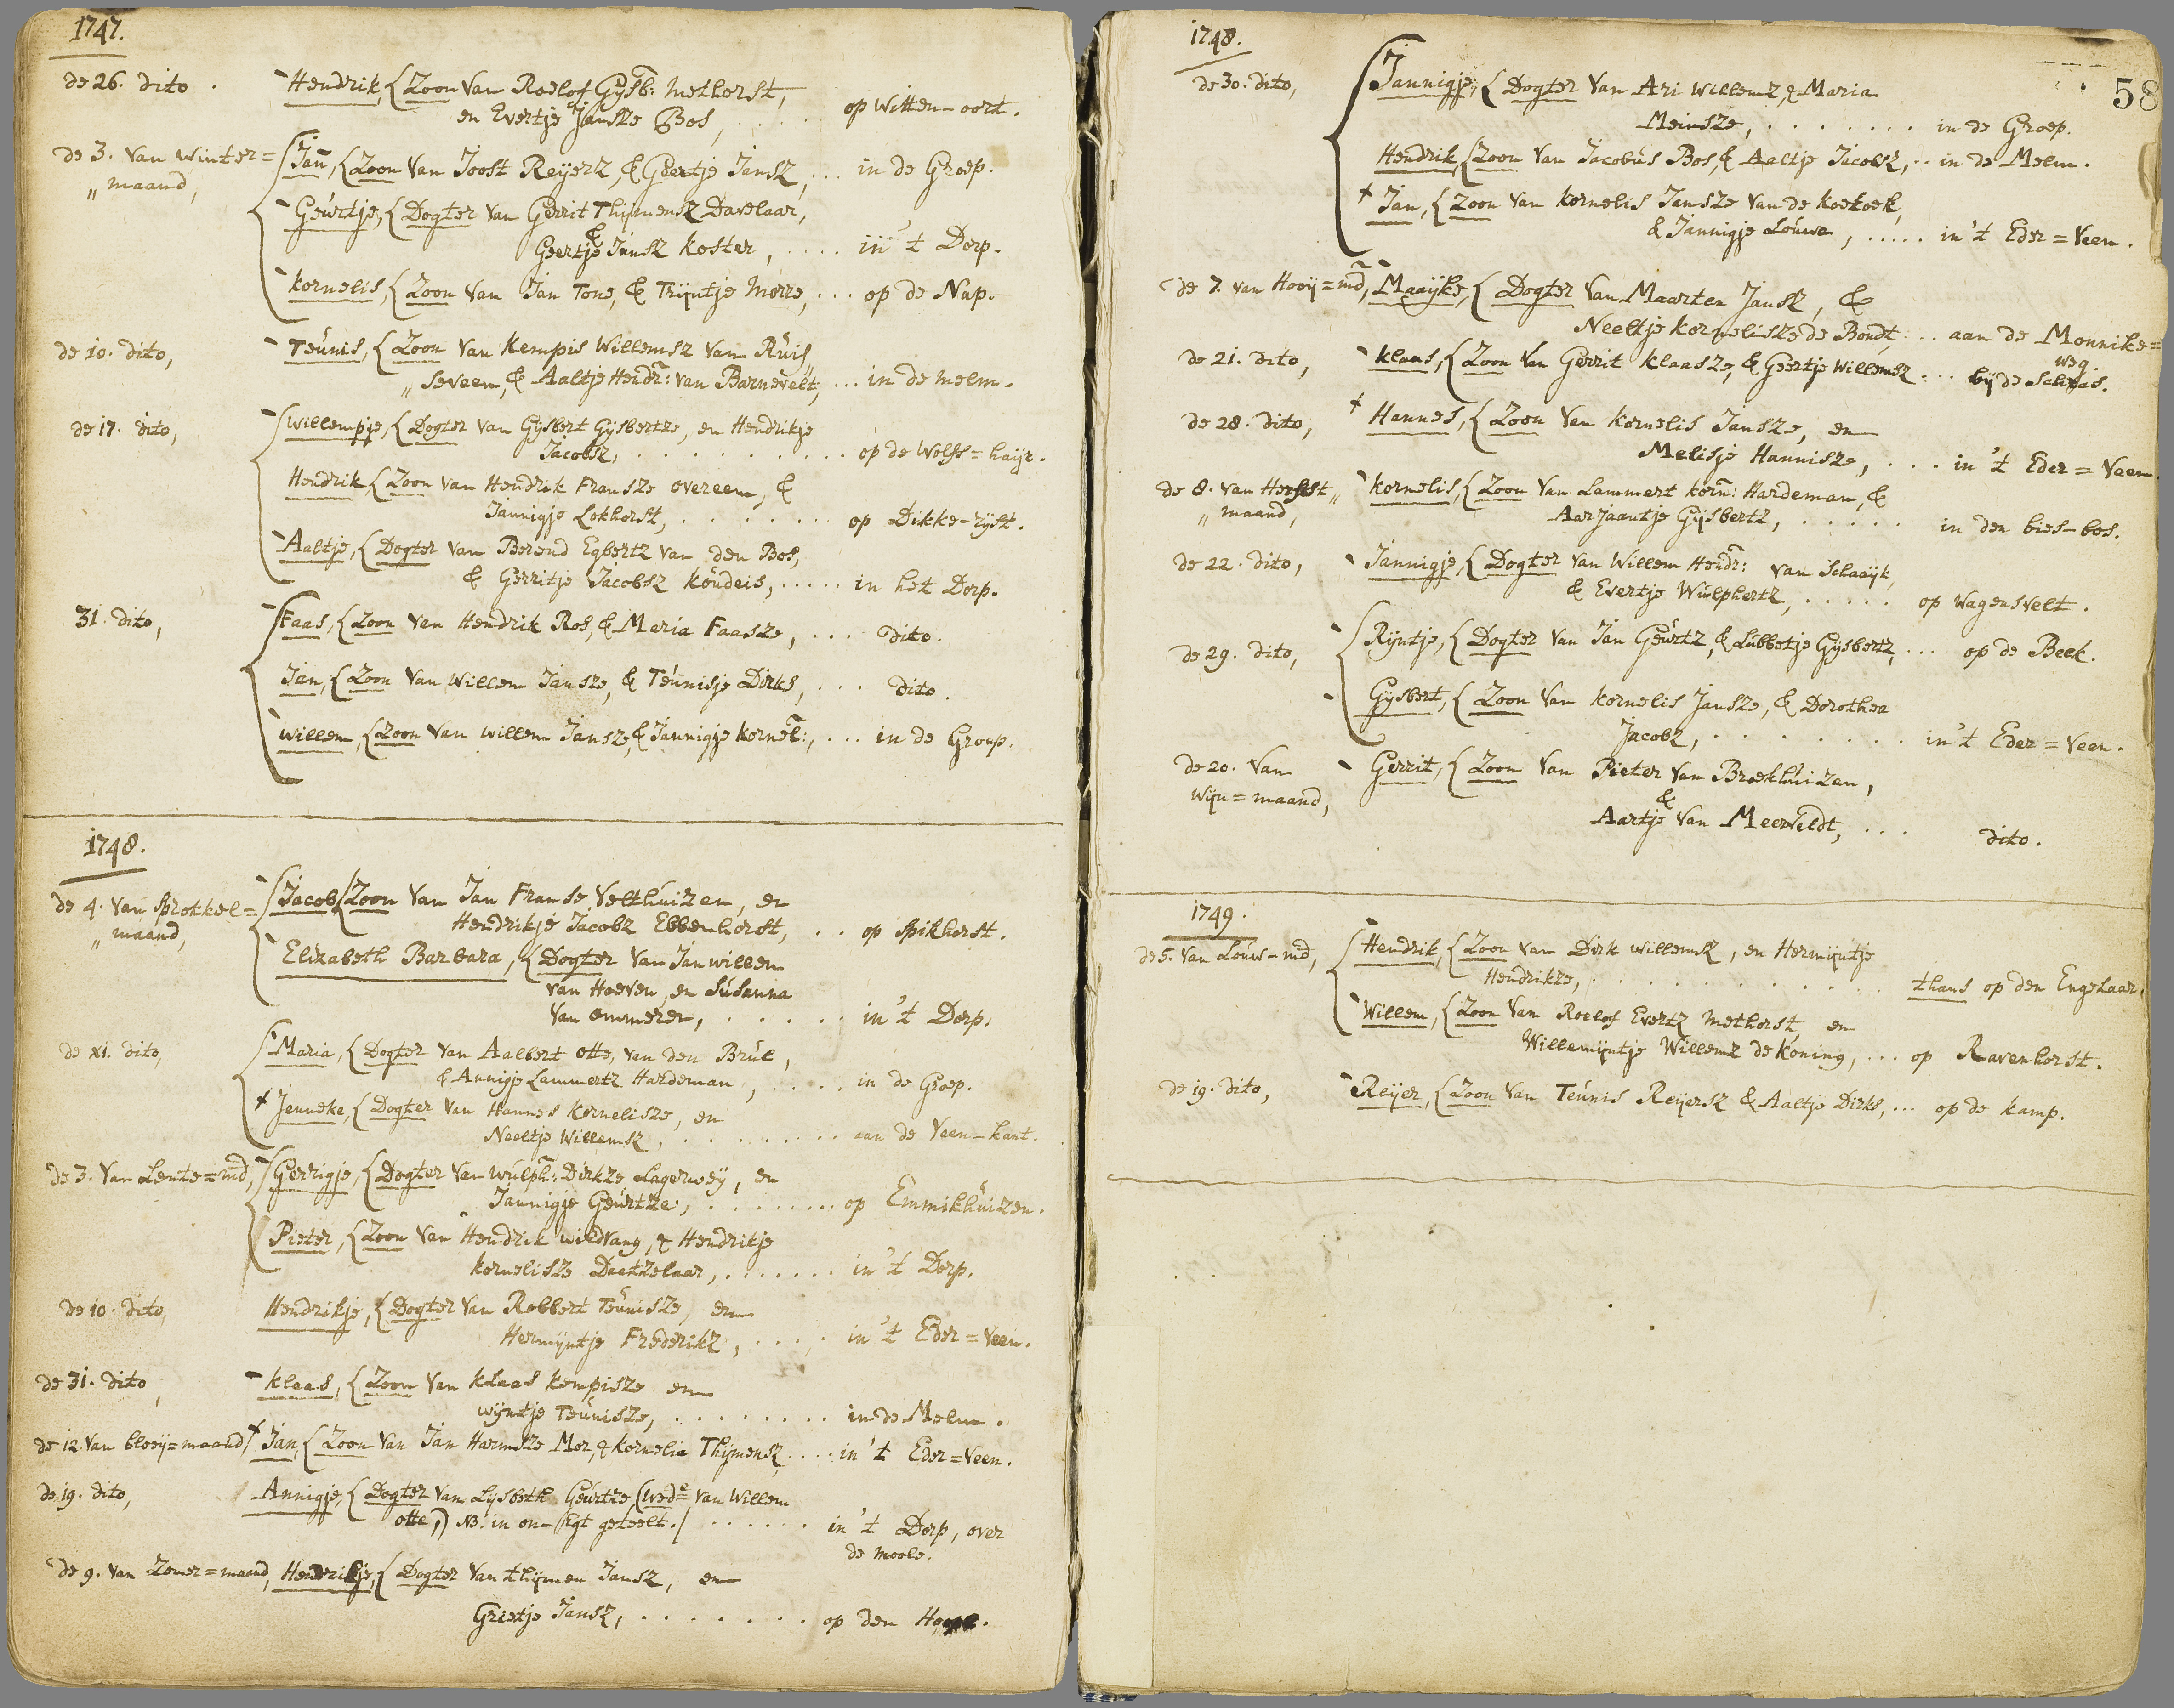 1747.
de 26. dito. Hendrik, {Zoon Van Roelof Gijsb: Methorst,
en Evertje Jansze Bos, ..... op Witten-oort.
de 3. Van Winter= Jan, {Zoon Van Joost Reyerz, & Geertje Jansz, ... in de Groep.
„maand,
Geurtje, {Dogter Van Gerrit Thijmensz Davelaar,
&
Geertje Jansz Koster, .... in 't Dorp.
Kornelis, {Zoon Van Jan Tone, & Trijntje Morre, ... op de Nap.
de 10. dito, Teunis, {Zoon Van Kempis Willemsz Van Ruis„
„seveen, & Aaltje Hendr: van Barnevelt, ... in de Melm.
de 17. dito, Willempje, {Dogter Van Gijsbert Gijsbertze, en Hendrikje
Jacobsz, .......... op de Wolfs=haijr.
Hendrik, {Zoon Van Hendrik Fransze Overeem, &
Jannigje Lokhorst, ....... op Dikke-rijst.
Aaltje, {Dogter Van Berend Egbertz Van den Bos,
& Gerritje Jacobsz Koudeis, ..... in het Dorp.
31. dito, Faas, {Zoon Van Hendrik Ros, & Maria Faasze, ... dito.
Jan, {Zoon Van Willem Jansze, & Teunisje Dirks, ... dito.
Willem, {Zoon Van Willem Jansze, & Jannigje Kornel:, ... in de Group.
1748.
de 4. Van Sprokkel= Jacob {Zoon Van Jan Franse Velthuizen, en
„maand, Hendrikje Jacobz Ebbenhorst, ... op Spikhorst.
Elizabeth Barbara, {Dogter Van Jan Willem
van Hoeven, en Susanna
Van Ommeren, ..... in 't Dorp.
de xi. dito, Maria, {Dogter Van Aalbert Otte, van den Brul,
& Annigje Lammertz Hardeman, .... in de Groep.
+ Jenneke, {Dogter Van Hannes Kornelisze, en
Neeltje Willemsz, ........ aan de Veen-kant.
de 3. Van Lente=md, Gerrigje, {Dogter Van Wulph: Dirkze Lagerweij, en
Jannigje Geurtze, ....... op Emmikhuizen.
Pieter, {Zoon Van Hendrik Wildvang, & Hendrikje
Kornelisze Daatzelaar, ...... in 't Dorp.
de 10. dito, Hendrikje, {Dogter Van Robbert Teunisze, en
Hermijntje Frederikz, .... in 't Eder=Veen.
de 31. dito, Klaas, {Zoon Van Klaas Kempisze en
Wijntje Teunisze, ........ in de Melm.
de 12. Van bloey=maand + Jan, {Zoon Van Jan Harmsze Mor, & Kornelia Thijmensz, .... in 't Eder=Veen.
de 19. dito, Annigje, {Dogter Van Lijsbeth Geurtze, (wede Van Willem
Otte,) NB. in on-Egt geteelt./ ...... in 't Dorp, over
de Moole.
de 9. van Zomer=maand, Hendrikje, {Dogter Van Thijmen Jansz, en
Grietje Jansz, ....... op den
1748. 58
de 30. dito, Jannigje, {Dogter Van Ari Willemz, & Maria
Meinsze, ........ in de Groep.
Hendrik, {Zoon Van Jacobus Bos, & Aaltje Jacobsz, .. in de Melm.
+ Jan, {Zoon Van Kornelis Jansze Van de Koekoek,
& Jannigje Louwe, ..... in 't Eder=Veen.
de 7. van Hooij=md, Maaijke, {Dogter Van Maarten Jansz, &
Neeltje Kornelisze de Bondt, ... aan de Monnike=
weg.
de 21. dito, Klaas, {Zoon Van Gerrit Klaasze, & Geertje Willemsz ... bij de Schans.
de 28. dito, + Hannes, {Zoon Van Kornelis Jansze, en
Melisje Hannisze, ... in 't Eder=Veen.
de 8. van Herfst„ Kornelis, {Zoon Van Lammert Korn: Hardeman, &
„maand, Aarjaantje Gijsbertz, ..... in den bies-bos.
de 22. dito, Jannigje, {Dogter Van Willem Hendr: van Schaaijk,
& Evertje Wulphertz, ..... op Wagensvelt.
de 29. dito, Rijntje, {Dogter Van Jan Geurtz, & Lubbetje Gijsbertz, ... op de Beek.
Gijsbert, {Zoon Van Kornelis Jansze, & Dorothea
Jacobz, ........ in 't Eder=Veen.
de 20. Van Gerrit, {Zoon Van Pieter Van Broekhuizen,
Wijn=maand, &
Aartje Van Meerveldt, ... dito.
1749.
de 5. Van Louw-md, Hendrik, {Zoon Van Dirk Willemsz, en Hermijntje
Hendrikze, ............ thans op den Engelaar.
Willem, {Zoon Van Roelof Evertz Methorst, en
Willemijntje Willemz de Koning, ... op Ravenhorst.
de 19. dito, Reijer, {Zoon Van Teunis Reijersz & Aaltje Dirks, ... op de Kamp.